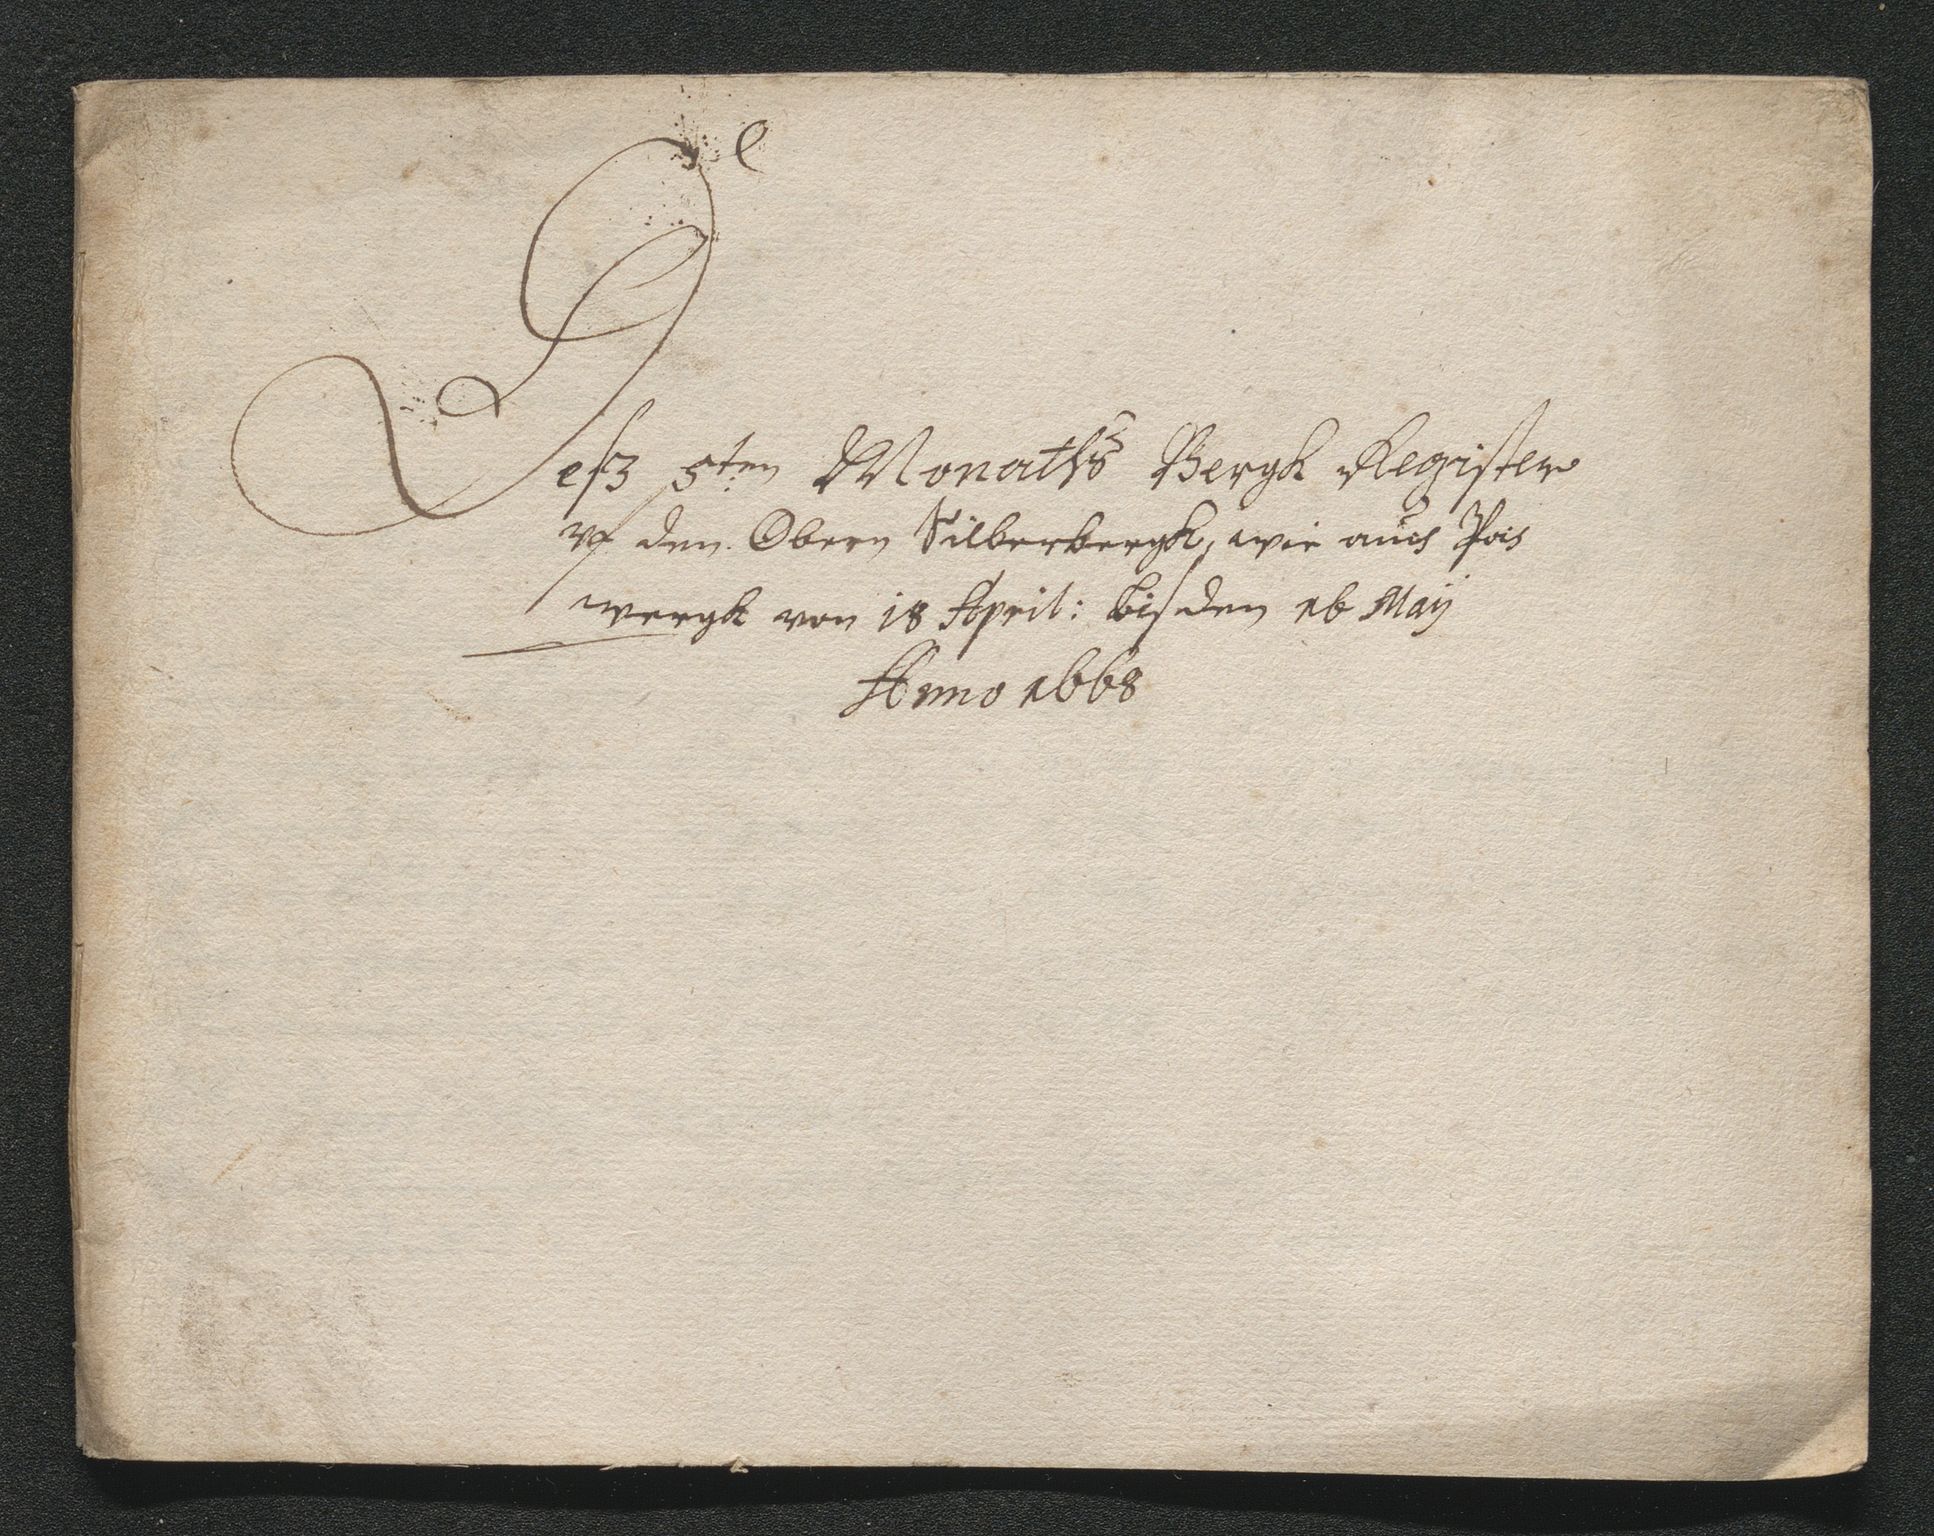 e
Deß 5ten Monaths Bergk Register
vf den Obern Silberbergk, wie auch Poch
wergk von 18 April: bis den 16 Maÿ
Anno 1668